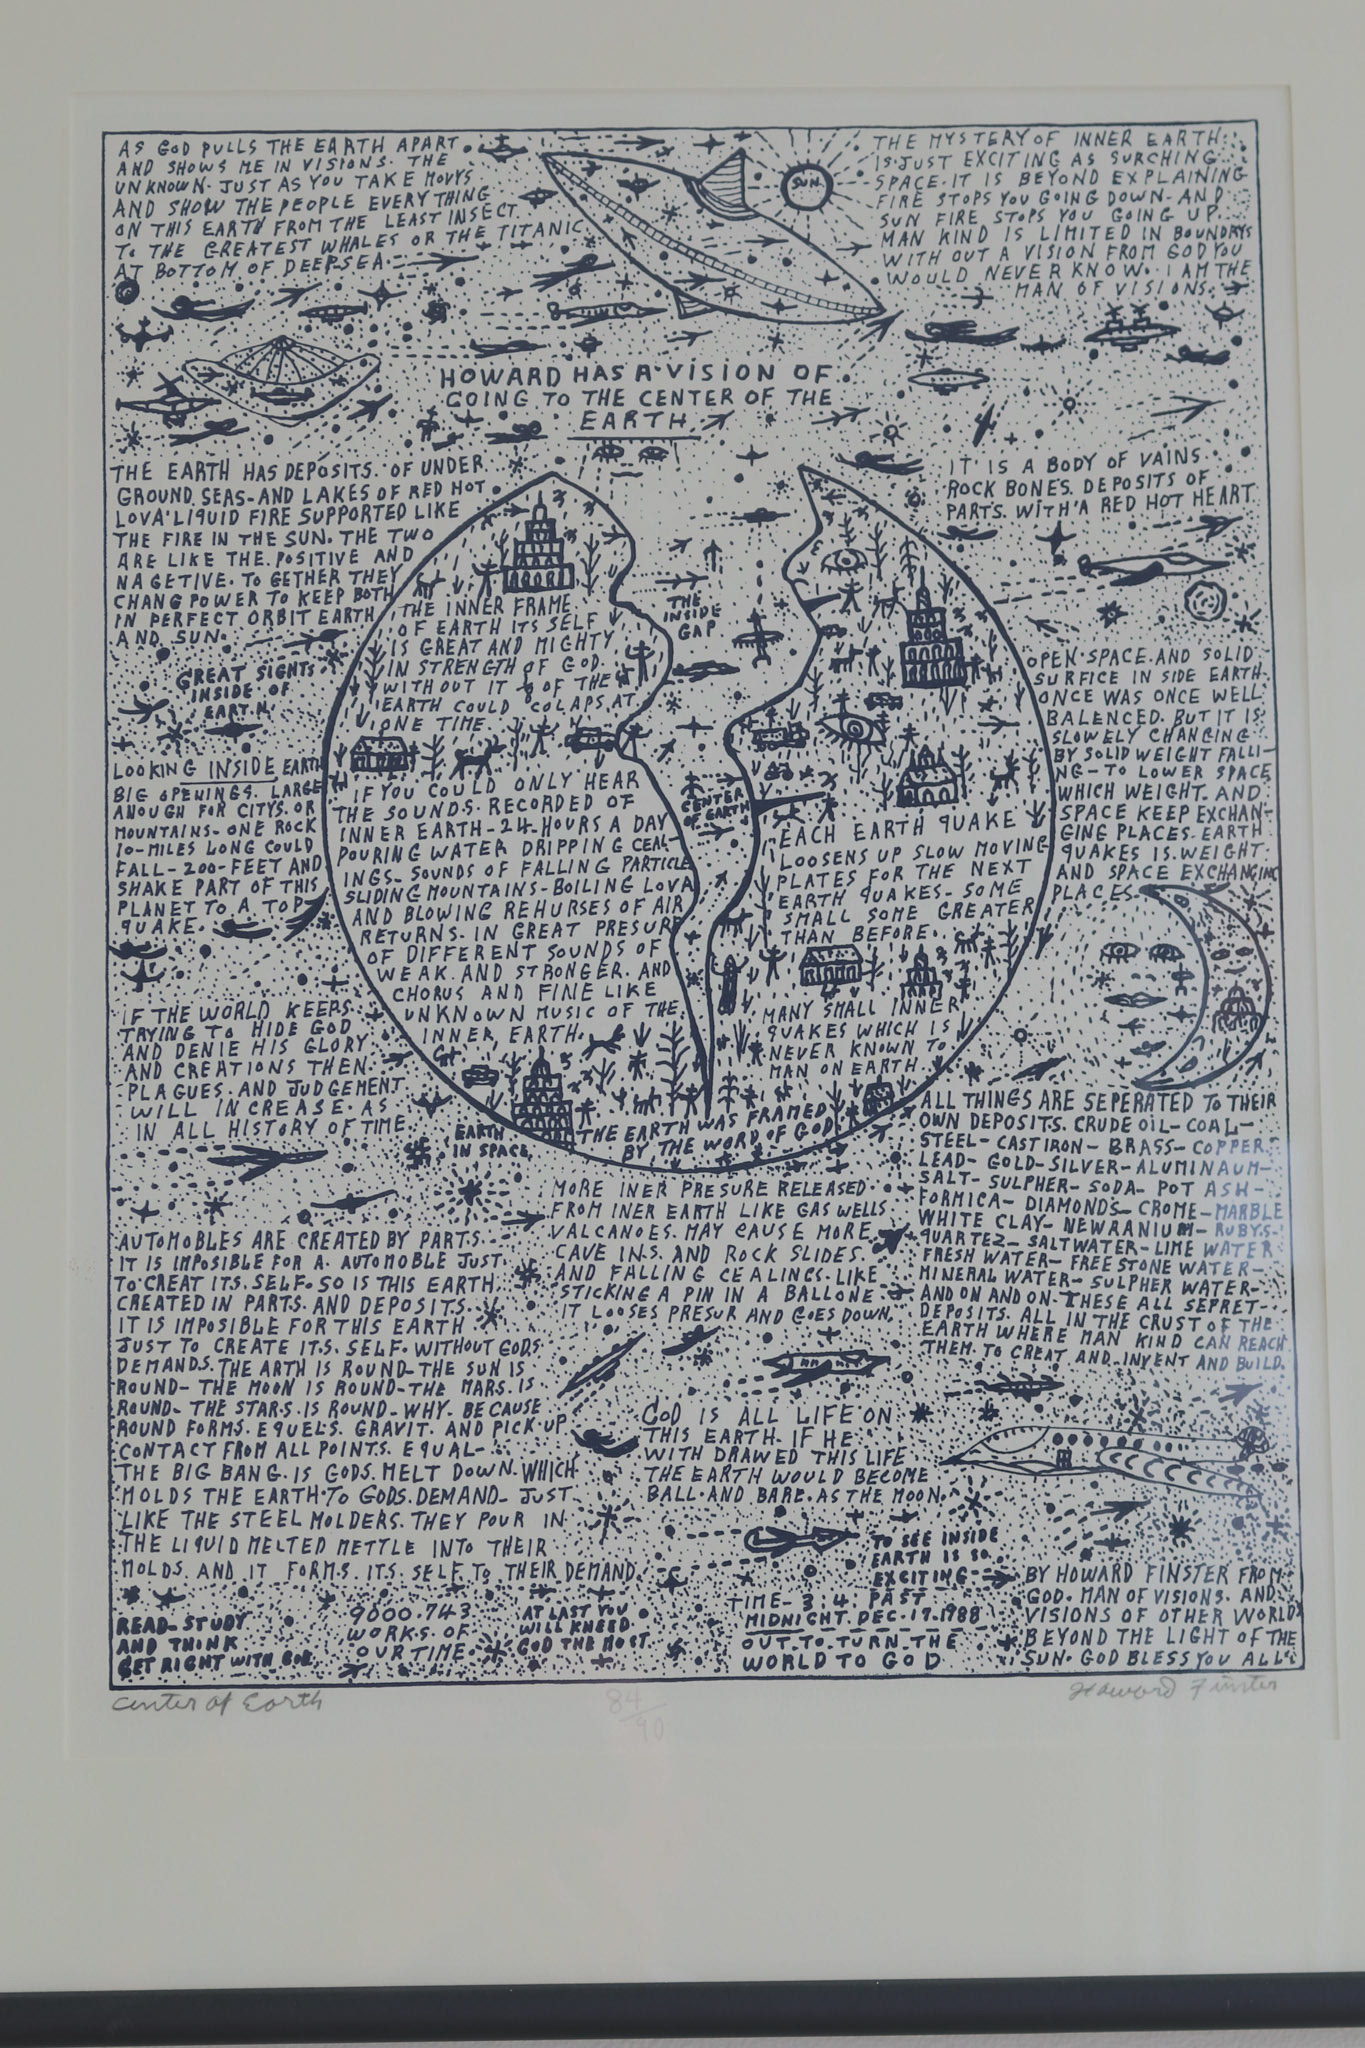 AS GOD PULLS THE EARTH APART.
AND SHOWS ME IN VISIONS. THE
UNKNOWN. JUST AS YOU TAKE MOVYS
AND SHOW THE PEOPLE EVERY THING
ON THIS EARTH FROM THE LEAST INSECT.
TO THE GREATEST WHALES OR THE TITANIC
AT BOTTOM OF DEEPSEA.
THE MYSTERY OF INNER EARTH
IS JUST EXCITING AS SURCHING
SPACE. IT IS BEYOND EXPLAINING
FIRE STOPS YOU GOING DOWN. AND
SUN FIRE STOPS YOU GOING UP.
MAN KIND IS LIMITED IN BOUNDRYS
WITH OUT A VISION FROM GOD YOU
WOULD NEVER KNOW. I AM THE
MAN OF VISIONS.
SUN
HOWARD HAS A VISION OF
GOING TO THE CENTER OF THE
EARTH
THE EARTH HAS DEPOSITS. OF UNDER
GROUND. SEAS-AND LAKES OF RED HOT
LOVA' LIQUID FIRE SUPPORTED LIKE
THE FIRE IN THE SUN. THE TWO
ARE LIKE THE. POSITIVE AND
NAGETIVE. TO GETHER THEY
CHANG POWER TO KEEP BOTH
IN PERFECT ORBIT EARTH
AND SUN.
IT IS A BODY OF VAINS.
ROCK BONES. DEPOSITS OF
PARTS. WITH A RED HOT HEART
GREAT SIGHTS
INSIDE OF
EARTH
LOOKING INSIDE EARTH
BIG OPENINGS. LARGE
ANOUGH FOR CITYS. OR
MOUNTAINS- ONE ROCK
10-MILES LONG COULD
FALL-200-FEET AND
SHAKE PART OF THIS
PLANET TO A TOP
QUAKE.
THE INNER FRAME
OF EARTH ITS SELF
IS GREAT AND MIGHTY
IN STRENGTH OF GOD.
WITHOUT IT OF THE
EARTH COULD COLAPS AT
ONE TIME.
THE
INSIDE
GAP
IF YOU COULD ONLY HEAR
THE SOUNDS. RECORDED OF
INNER EARTH-24-HOURS A DAY
POURING WATER DRIPPING CEAL-
INGS-SOUNDS OF FALLING PARTICLE
SLIDING MOUNTAINS-BOILING LOVA
AND BLOWING REHURSES OF AIR
RETURNS. IN GREAT PRESUR
OF DIFFERENT SOUNDS OF
WEAK. AND STRONGER. AND
CHORUS AND FINE LIKE
UNKNOWN MUSIC OF THE
INNER, EARTH.
CENTER
OF EARTH
EACH EARTH QUAKE
LOOSENS UP SLOW MOVING
PLATES FOR THE NEXT
EARTH QUAKES-SOME
SMALL SOME GREATER
THAN BEFORE.
MANY SMALL INNER
QUAKES WHICH IS
NEVER KNOWN TO
MAN ON EARTH
THE EARTH WAS FRAMED
BY THE WORD OF GOD
OPEN SPACE. AND SOLID
SURFICE IN SIDE EARTH
ONCE WAS ONCE WELL
BALENCED. BUT IT IS
SLOWELY CHANGING
BY SOLID WEIGHT FALLI-
NG-TO LOWER SPACE
WHICH WEIGHT. AND
SPACE KEEP EXCHAN-
GING PLACES. EARTH
QUAKES IS. WEIGHT.
AND SPACE EXCHANGING
PLACES
IF THE WORLD KEEPS
TRYING TO HIDE GOD
AND DENIE HIS GLORY
AND CREATIONS THEN.
PLAGUES. AND JUDGEMENT
WILL INCREASE. AS
IN ALL HISTORY OF TIME.
EARTH
IN SPACE
MORE INER PRESURE RELEASED
FROM INER EARTH LIKE GAS WELLS
VALCANOES. MAY CAUSE MORE
CAVE INS. AND ROCK SLIDES.
AND FALLING CEALINGS. LIKE
STICKING A PIN IN A BALLONE.
IT LOOSES PRESUR AND GOES DOWN.
ALL THINGS ARE SEPERATED TO THEIR
OWN DEPOSITS. CRUDE OIL-COAL-
STEEL-CAST IRON-BRASS-COPPER
LEAD-GOLD-SILVER-ALUMINAUM-
SALT-SULPHER-SODA-POT ASH-
FORMICA-DIAMONDS-CROME-MARBLE
WHITE CLAY-NEWRANIUM-RUBYS.
QUARTEZ-SALTWATER-LIME WATER
FRESH WATER-FREESTONE WATER-
MINERAL WATER-SULPHER WATER-
AND ON AND ON. THESE ALL SEPRET
DEPOSITS. ALL IN THE CRUST OF THE
EARTH WHERE MAN KIND CAN REACH
THEM. TO CREAT AND INVENT AND BUILD.
AUTOMOBLES ARE CREATED BY PARTS.
IT IS IMPOSIBLE FOR A. AUTOMOBLE JUST
TO CREAT ITS. SELF. SO IS THIS EARTH
CREATED IN PARTS. AND DEPOSITS.
IT IS IMPOSIBLE FOR THIS EARTH
JUST TO CREATE ITS. SELF. WITHOUT GODS
DEMANDS. THE ARTH IS ROUND-THE SUN IS
ROUND-THE MOON IS ROUND-THE MARS. IS
ROUND-THE STARS. IS ROUND-WHY. BECAUSE
ROUND FORMS. EQUELS. GRAVIT. AND PICK UP
CONTACT FROM ALL POINTS. EQUAL-
THE BIG BANG. IS GODS. MELT DOWN. WHICH
MOLDS THE EARTH TO GODS. DEMAND-JUST
LIKE THE STEEL MOLDERS. THEY POUR IN
THE LIQUID MELTED METTLE INTO THEIR
MOLDS. AND IT FORMS. ITS. SELF TO THEIR DEMAND.
GOD IS ALL LIFE ON
THIS EARTH. IF HE
WITH DRAWED THIS LIFE
THE EARTH WOULD BECOME
BALL. AND BARE. AS THE MOON.
TO SEE INSIDE
EARTH IS SO
EXCITING
READ-STUDY
AND THINK
GET RIGHT WITH GOD
9000.743
WORKS. OF
OUR TIME.
AT LAST YOU
WILL KNEED
GOD THE MOST
TIME-3:4. PAST
MIDNIGHT. DEC. 17. 1988
OUT. TO. TURN. THE
WORLD TO GOD
BY HOWARD FINSTER FROM
GOD. MAN OF VISIONS. AND
VISIONS OF OTHER WORLDS
BEYOND THE LIGHT OF THE
SUN. GOD BLESS YOU ALL.
Center of Earth
84/90
Howard Finster